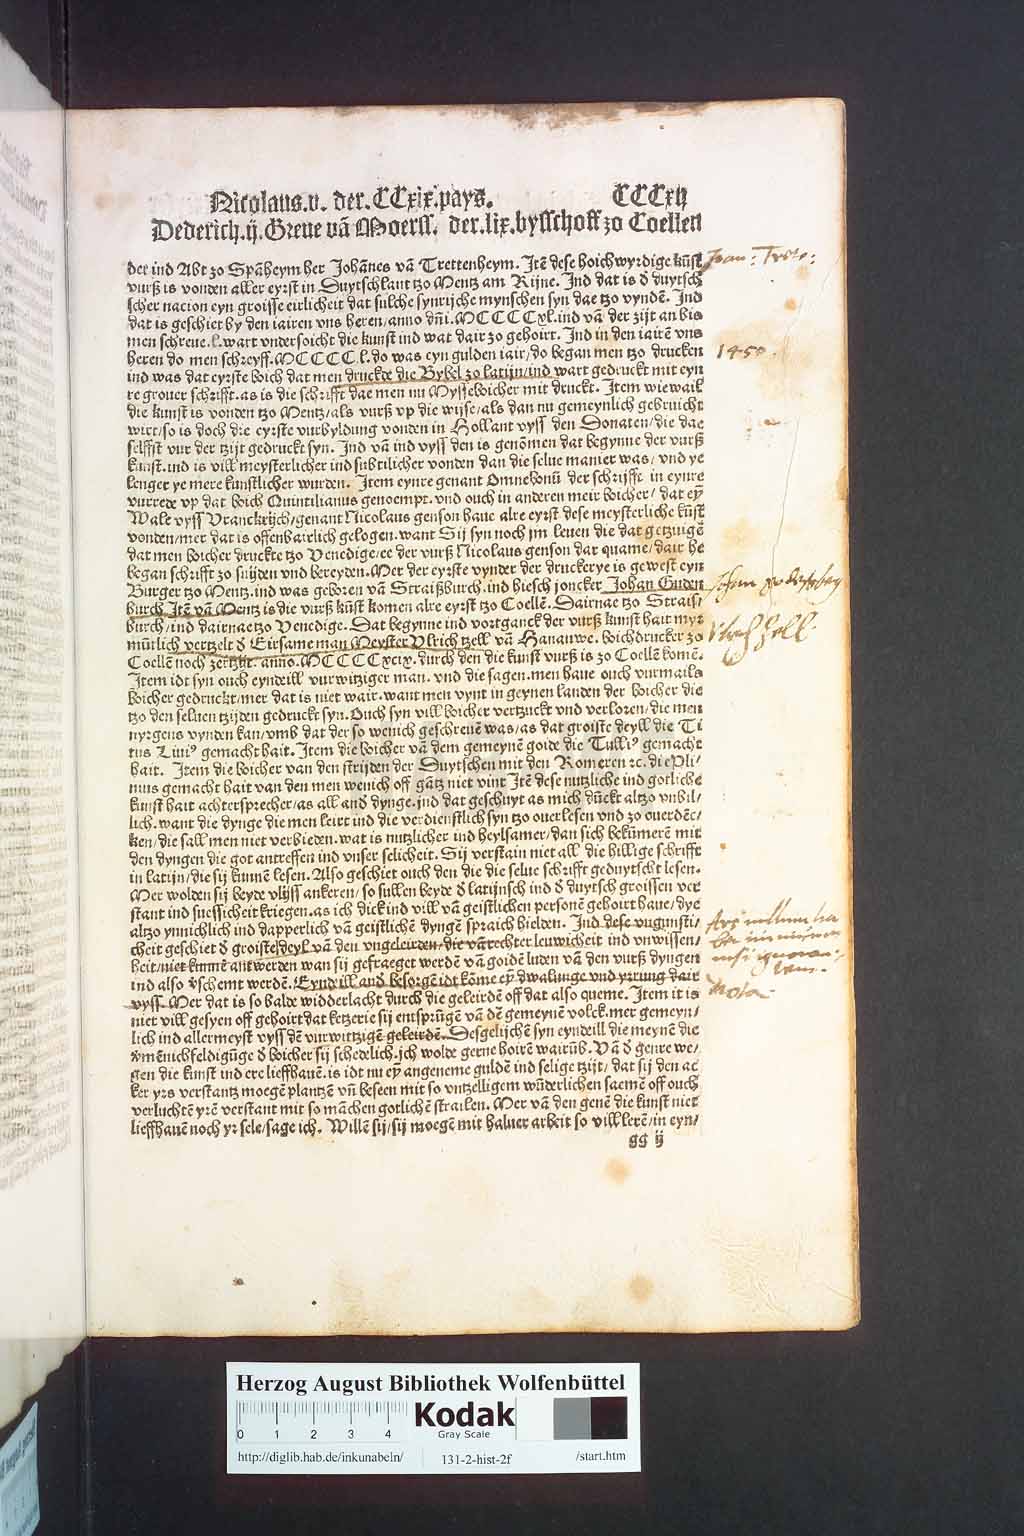 Nicolaus.v. der.CCxix.pays. CCCxij
Dederich.ij.Greue vā Moerss. der.lix.bysschoff zo Coellen
der ind Abt zo Spāheym her Johānes vā Trettenheym. Itē dese hoichwyrdige kūst
vurß is vonden aller eyrst in Duytschlant tzo Mentz am Rijne. Ind dat is d duytsch
scher nacion eyn groisse eirlicheit dat sulche synrijche mynschen syn dae tzo vyndē. Ind
dat is geschiet by den iairen vns heren/anno dñi.MCCCCxl.ind vā der zijt an bis
men schreue.l.wart vndersoicht die kunst ind wat dair zo gehoirt. Ind in den iairē vns
heren do men schreyff.MCCCC.l.do was eyn gulden iair/do began men tzo drucken
ind was dat eyrste boich dat men druckde die Bybel zo latijn/ind wart gedruckt mit eyn
re grouer schrifft.as is die schrifft dae men nu Mysseboicher mit druckt. Item wiewail
die kunst is vonden tzo Mentz/als vurß vp die wijse/als dan nu gemeynlich gebruicht
wirt/so is doch die eyrste vurbyldung vonden in Hollant vyss den Donaten/die dae
selffst vur der tzijt gedruckt syn. Ind vā ind vyss den is genōmen dat begynne der vurß
kunst.ind is vill meysterlicher ind subtilicher vonden dan die selue manier was/vnd ye
lenger ye mere kunstlicher wurden. Item eynre genant Omnebonū der schrijfft in eynre
vurrede vp dat boich Quintilianus genoempt.vnd ouch in anderen meir boicher/dat ey
Wale vyss Vranckrijch/genant Nicolaus genson haue alre eyrst dese meysterliche kūst
vonden/mer dat is offenbairlich gelogen.want Sij syn noch jm leuen die dat getzuigē
dat men boicher druckte tzo Venedige/ee der vurß Nicolaus genson dar quame/dair he
began schrifft zo snijden vnd bereyden.Mer der eyrste vynder der druckerye is gewest eyn
Burger tzo Mentz.ind was geboren vā Straißburch.ind hiesch joncker Johan Guden
burch Itē vā Mentz is die vurß kūst komen alre eyrst tzo Coellē. Dairnae tzo Strais/
burch/ind dairnae tzo Venedige. Dat begynne ind vortganck der vurß kunst hait myr
mūtlich vertzelt d Eirsame man Meyster Vlrich tzell vā Hanauwe. boichdrucker zo
Coellē noch zertzijt. anno.MCCCCxcix.durch den die kunst vurß is zo Coellē komē.
Item idt syn ouch eyndeill vurwitziger man. vnd die sagen.men haue ouch vurmails
boicher gedruckt/mer dat is niet wair.want men vynt in geynen landen der boicher die
tzo den seluen tzijden gedruckt syn.Ouch syn vill boicher vertzuckt vnd verloren/die men
nyrgens vynden kan/vmb dat der so wenich geschreuē was/as dat groiste deyll die Ti
tus Liui⁹ gemacht hait. Item die boicher vā dem gemeynē goide die Tulli⁹ gemacht
hait. Item die boicher van den strijden der Duytschen mit den Romeren ⁊c.die Pli/
nius gemacht hait van den men wenich off gātz niet vint Itē dese nutzliche ind gotliche
kunst hait achtersprecher/as all and dynge.jnd dat geschuyt as mich dūckt altzo vnbil/
lich.want die dynge die men leirt ind die verdienstlich syn tzo ouerlesen vnd zo ouerdēc/
ken/die sall men niet verbieden.wat is nutzlicher ind heylsamer/dan sich bekūmerē mit
den dyngen die got antreffen ind vnser selicheit. Sij verstain niet all die hillige schrifft
in latijn/die sij kunnē lesen. Also geschiet ouch den die die selue schrifft geduytscht lesen.
Mer wolden sij beyde vlijss ankeren/so sullen beyde d latijnsch ind d duytsch groissen ver
stant ind suessicheit kriegen.as ich dick ind vill vā geistlichen personē gehoirt haue/dye
altzo ynnichlich ind dapperlich vā geistlichē dyngē spraich hielden. Ind dese vngunsti/
cheit geschiet d groiste deyl vā den vngeleirden/die vā rechter leuwicheit ind vnwissen/
heit/niet kunnē antwerden wan sij gefraeget werdē vā goidē luden vā den vurß dyngen
ind also v̄schemt werdē. Eyndeill and besorgē idt kōme ey dwalunge vnd yrrung dair
vyss.Mer dat is so balde widderlacht durch die geleirdē off dat also queme. Item it is
niet vill gesyen off gehoirt dat ketzerie sij entsprūgē vā dē gemeynē volck.mer gemeyn/
lich ind allermeyst vyss dē vurwittzigē geleirdē. Desgelijchē syn eyndeill die meynē die
v̄mēnichfeldigūge d boicher sij schedelich.jch wolde gerne hoirē wairūb. Vā d genre we/
gen die kunst ind ere lieffhauē.is idt nu ey angeneme guldē ind selige tzijt/dat sij den ac
ker yrs verstantz moegē plantzē vñ beseen mit so vntzelligem wūderlichen saemē off ouch
verluchtē yrē verstant mit so māchen gotlichē strailen. Mer vā den genē die kunst niet
lieffhauē noch yr sele/sage ich. Willē sij/sij moegē mit haluer arbeit so vill lerē/in eyn/
gg ij
1450.
Vlrich Zell.
Ars nullum ha
nisi ignoran
tem.
Nota
Herzog August Bibliothek Wolfenbüttel
0 1 2 3 4
Kodak
Gray Scale
http://diglib.hab.de/inkunabeln/ 131-2-hist-2f /start.htm